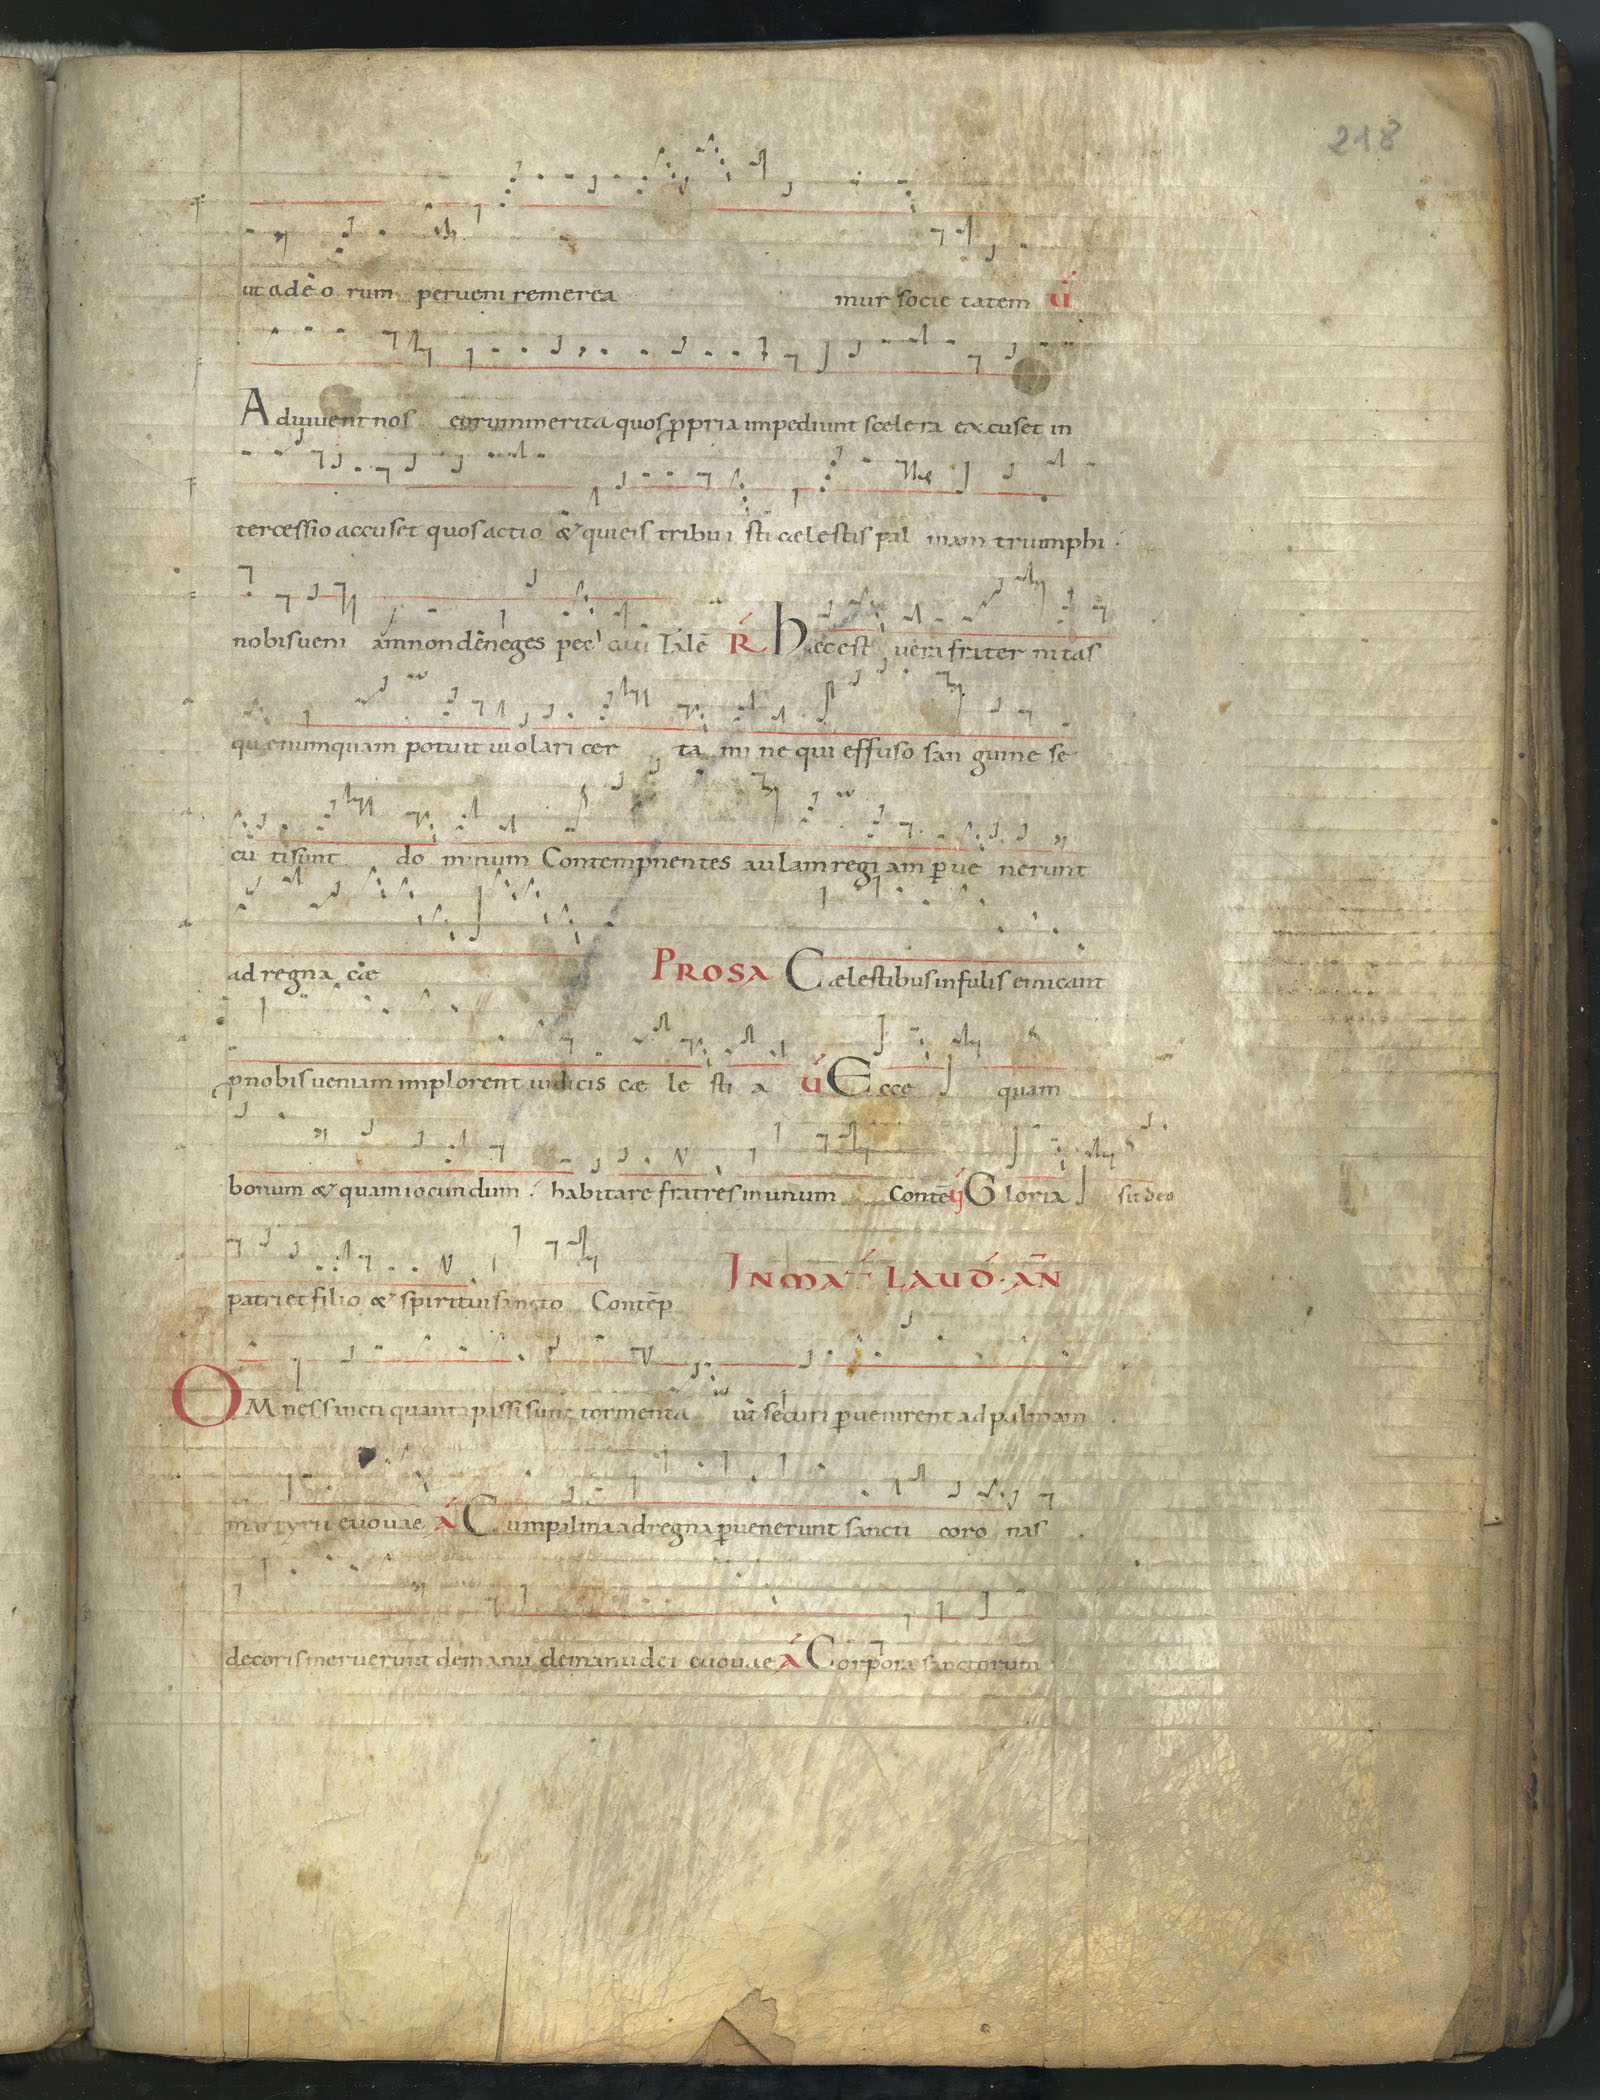 218
ut ad eorum pervenire merea mur societatem V
Adiuvent nos eorum merita quos ppria impediunt scelera excuset in
tercessio accuset quos actio & qui eis tribuisti cælestis palmam triumphi.
nobis veniam non deneges pecca R Hæc est vera fraternitas
quæ numquam potuit violari certamine qui effuso sanguine se
cuti sunt dominum Contempnentes aulam regiam pvenerunt
ad regna cæ PROSA Cælestibus infulis emicant
p nobis veniam implorent vidicis cælestia V Ecce quam
bonum & quam iocundum. habitare fratres in unum Conte V Gloria sit deo
patri et filio & spiritui sancto Contēp IN MAT LAUD. AN
OMnes sancti quanta passi sunt tormenta ut securi pvenirent ad palmam
martyrii evovae A Cum palma ad regna pvenerunt sancti coronas
decoris meruerunt de manu de manu dei evovae A Corpora sanctorum